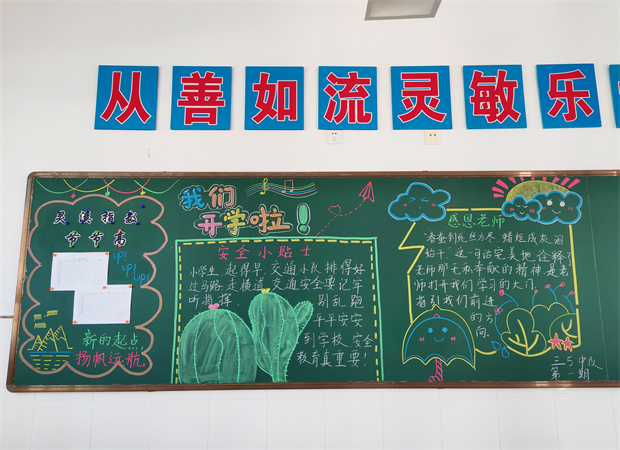 从善如流灵敏乐
灵溪指数
节节高
up!
up!
up!
新的起点,
扬帆远航
我们
开学啦!
安全小贴士
小学生 起得早,交通小队排得好
过马路 走横道 交通安全要记牢
听指挥, 别乱跑
平平安安
到学校 安全
教育真重要!
感恩老师
“春蚕到死丝方尽,蜡炬成灰泪
始干”这一句诗完美地诠释了
老师那无私奉献的精神是老
师打开我们学习的大门,
指引我们前进
的方
向。
三5中队
第一期